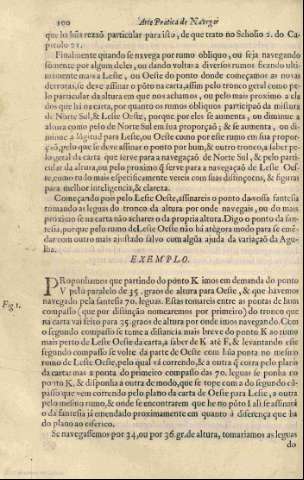 100 Arte Pratica de Nauegar
que ha hũa rezaõ particular para isso, de que trato no Scholio 2. do Ca-
pitulo 21.
Finalmente quando se navega por rumo obliquo, ou seja navegando
somente por algum deles, ou dando voltas a diversos rumos ficando ulti-
mamente mais a Leste, ou Oeste do ponto donde começamos as novas
derrotas, se deve assinar o põto na carta, assim pelo tronco geral como pe-
lo particular da altura em que nos achamos, ou pelo mais proximo a ela
dos que hà na carta, por quanto os rumos obliquos participaõ da mistura
de Norte Sul, & Leste Oeste, porque por eles se aumenta, ou diminue a
altura como pelo de Norte Sul em sua proporçaõ; & se aumenta, ou di-
minue a lõgitud para Leste, ou Oeste como por este rumo em sua propor-
çaõ, pelo que se deve assinar o ponto por hum, & outro tronco, a saber pe-
lo geral da carta que serve para a navegaçaõ de Norte Sul, & pelo parti-
cular da altura, ou pelo proximo q̃ serve para a navegaçaõ de Leste Oes-
te, como tudo mais especificamente vereis com suas distinçoens, & figuras
para melhor inteligencia, & clareza.
Começando pois pelo Leste Oeste, assinareis o ponto da vossa fantesia
tomando as legoas do tronco da altura por onde navegais, ou do mais
proximo se na carta não achares o da propria altura. Digo o ponto da fan-
tesia, porque pelo rumo de Leste Oeste não hà atègora modo para se emẽ-
dar com outro mais ajustado salvo com algũa ajuda da variaçaõ da Agu-
lha.
EXEMPLO.
Fig. 1.
PRoponhamos que partindo do ponto K imos em demanda do ponto
V pelo paralelo de 35. graos de altura para Oeste, & que havemos
navegado pela fantesia 70. leguas. Estas tomareis entre as pontas de hum
compasso (que por distinção nomearemos por primeiro) do tronco que
na carta vai feito para 35 graos de altura por onde imos navegando. Com
o segundo compasso se tome a distancia mais breve do ponto K ao rumo
mais perto de Leste Oeste da carta, a saber de K atè F, & levandando esse
segundo compasso se volte da parte de Oeste com hũa ponta no mesmo
rumo de Leste Oeste, pelo qual và correndo, & a outra q̃ corra pelo plano
da carta: mas a ponta do primeiro compasso das 70. leguas se ponha no
porto K, & disponhase a outra de modo, que se tope com a do segundo cõ-
passo que vem correndo pelo plano da carta de Oeste para Leste, a outra
pelo mesmo rumo, & onde se encontrarem que he no põto I ali se assinarà
o da fantesia jà emendado proximamente em quanto à diferença que ha
do plano ao esferico.
Se navegassemos por 34, ou por 36. gr. de altura, tomariamos as leguas
do